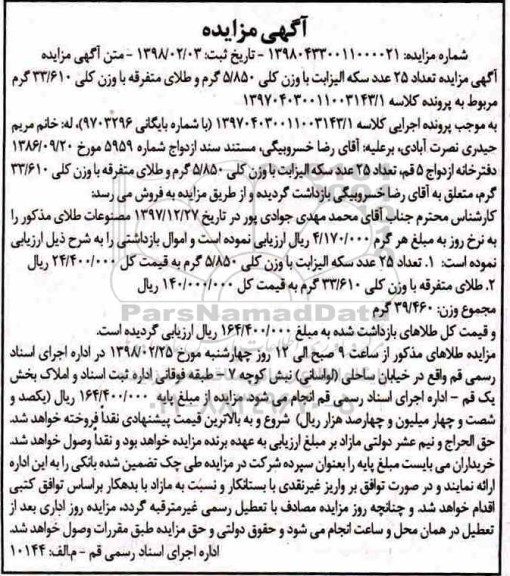 آگهی مزایده
شماره مزایده: ۱۳۹۸۰۴۳۳۰۰۱۱۰۰۰۰۲۱ - تاریخ ثبت: ۱۳۹۸/۰۲/۰۳ - متن آگهی مزایده
آگهی مزایده تعداد ۲۵ عدد سکه الیزابت با وزن کلی ۵/۸۵۰ گرم و طلای متفرقه با وزن کلی ۳۳/۶۱۰ گرم
مربوط به پرونده کلاسه ۱۳۹۷۰۴۰۳۰۰۱۱۰۰۳۱۴۳/۱
به موجب پرونده اجرایی کلاسه ۱۳۹۷۰۴۰۳۰۰۱۱۰۰۳۱۴۳/۱ (با شماره بایگانی ۹۷۰۳۲۹۶)، له: خانم مریم
حیدری نصرت آبادی، برعلیه: آقای رضا خسروبیگی، مستند سند ازدواج شماره ۵۹۵۹ مورخ ۱۳۸۶/۰۹/۲۰
دفترخانه ازدواج ۵ قم، تعداد ۲۵ عدد سکه الیزابت با وزن کلی ۵/۸۵۰ گرم و طلای متفرقه با وزن کلی ۳۳/۶۱۰
گرم، متعلق به آقای رضا خسروبیگی بازداشت گردیده و از طریق مزایده به فروش می رسد:
کارشناس محترم جناب آقای محمد مهدی جوادی پور در تاریخ ۱۳۹۷/۱۲/۲۷ مصنوعات طلای مذکور را
به نرخ روز به مبلغ هر گرم ۴/۱۷۰/۰۰۰ ریال ارزیابی نموده است و اموال بازداشتی را به شرح ذیل ارزیابی
نموده است: ۱. تعداد ۲۵ عدد سکه الیزابت با وزن کلی ۵/۸۵۰ گرم به قیمت کل ۲۴/۴۰۰/۰۰۰ ریال
۲. طلای متفرقه با وزن کلی ۳۳/۶۱۰ گرم به قیمت کل ۱۴۰/۰۰۰/۰۰۰ ریال
مجموع وزن: ۳۹/۴۶۰ گرم
و قیمت کل طلاهای بازداشت شده به مبلغ ۱۶۴/۴۰۰/۰۰۰ ریال ارزیابی گردیده است.
مزایده طلاهای مذکور از ساعت ۹ صبح الی ۱۲ روز چهارشنبه مورخ ۱۳۹۸/۰۲/۲۵ در اداره اجرای اسناد
رسمی قم واقع در خیابان ساحلی (لواسانی) نبش کوچه ۷ - طبقه فوقانی اداره ثبت اسناد و املاک بخش
یک قم - اداره اجرای اسناد رسمی قم انجام می شود. مزایده از مبلغ پایه ۱۶۴/۴۰۰/۰۰۰ ریال (یکصد و
شصت و چهار میلیون و چهارصد هزار ریال) شروع و به بالاترین قیمت پیشنهادی نقداً فروخته خواهد شد.
حق الحراج و نیم عشر دولتی مازاد بر مبلغ ارزیابی به عهده برنده مزایده خواهد بود و نقداً وصول خواهد شد.
خریداران می بایست مبلغ پایه را بعنوان سپرده شرکت در مزایده طی چک تضمین شده بانکی را به این اداره
ارائه نمایند و در صورت توافق بر واریز غیرنقدی با بستانکار و نسبت به مازاد با بدهکار براساس توافق کتبی
اقدام خواهد شد. و چنانچه روز مزایده مصادف با تعطیل رسمی غیرمترقبه گردد، مزایده روز اداری بعد از
تعطیل در همان محل و ساعت انجام می شود و حقوق دولتی و حق مزایده طبق مقررات وصول خواهد شد.
اداره اجرای اسناد رسمی قم - م‌الف: ۱۰۱۴۴
ParsNamadData